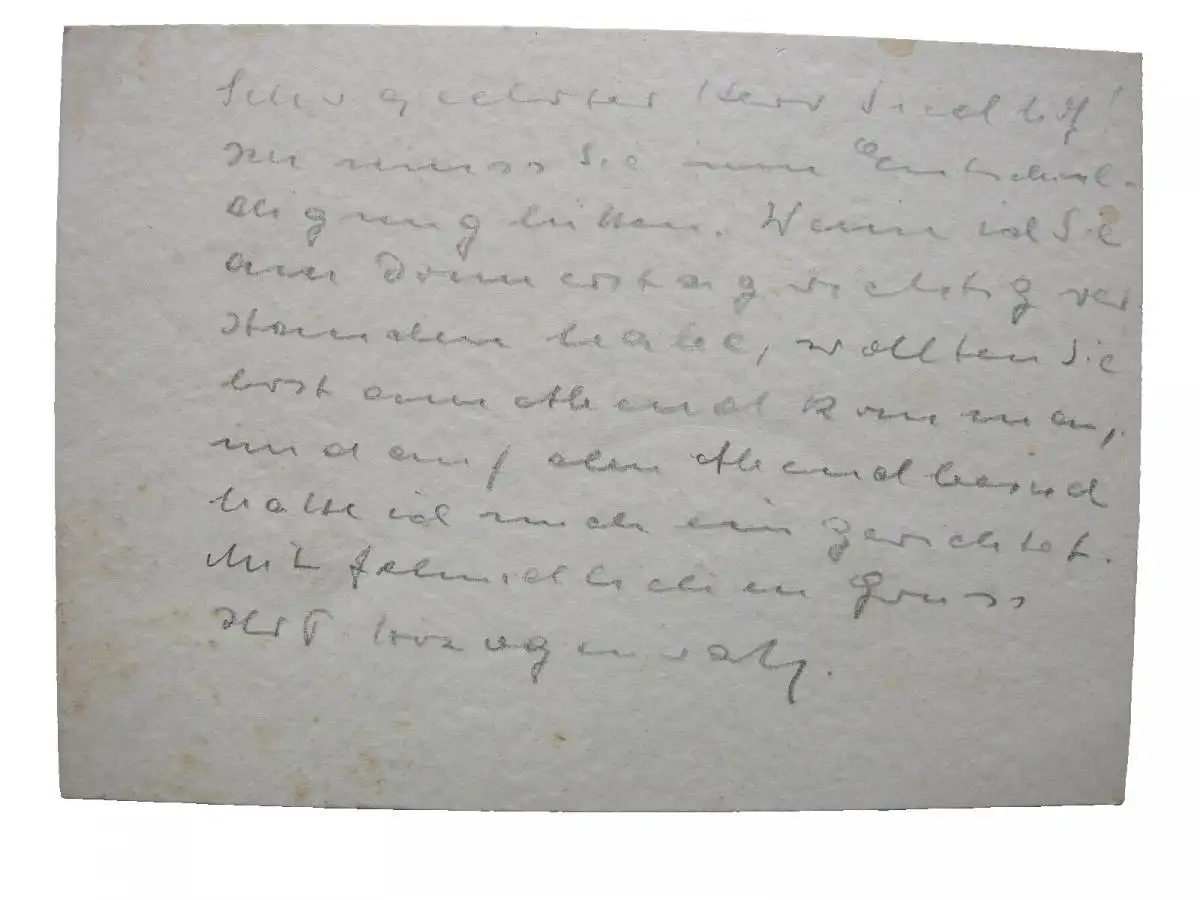 Sehr geehrter Herr
Ich muss Sie um Entschul-
digung bitten. Wenn ich Sie
am Donnerstag richtig ver
standen habe, wollten Sie
erst am Abend kommen,
und auf den Abendbesuch
hatte ich mich eingerichtet.
Mit freundlichem Gruss
Ihr